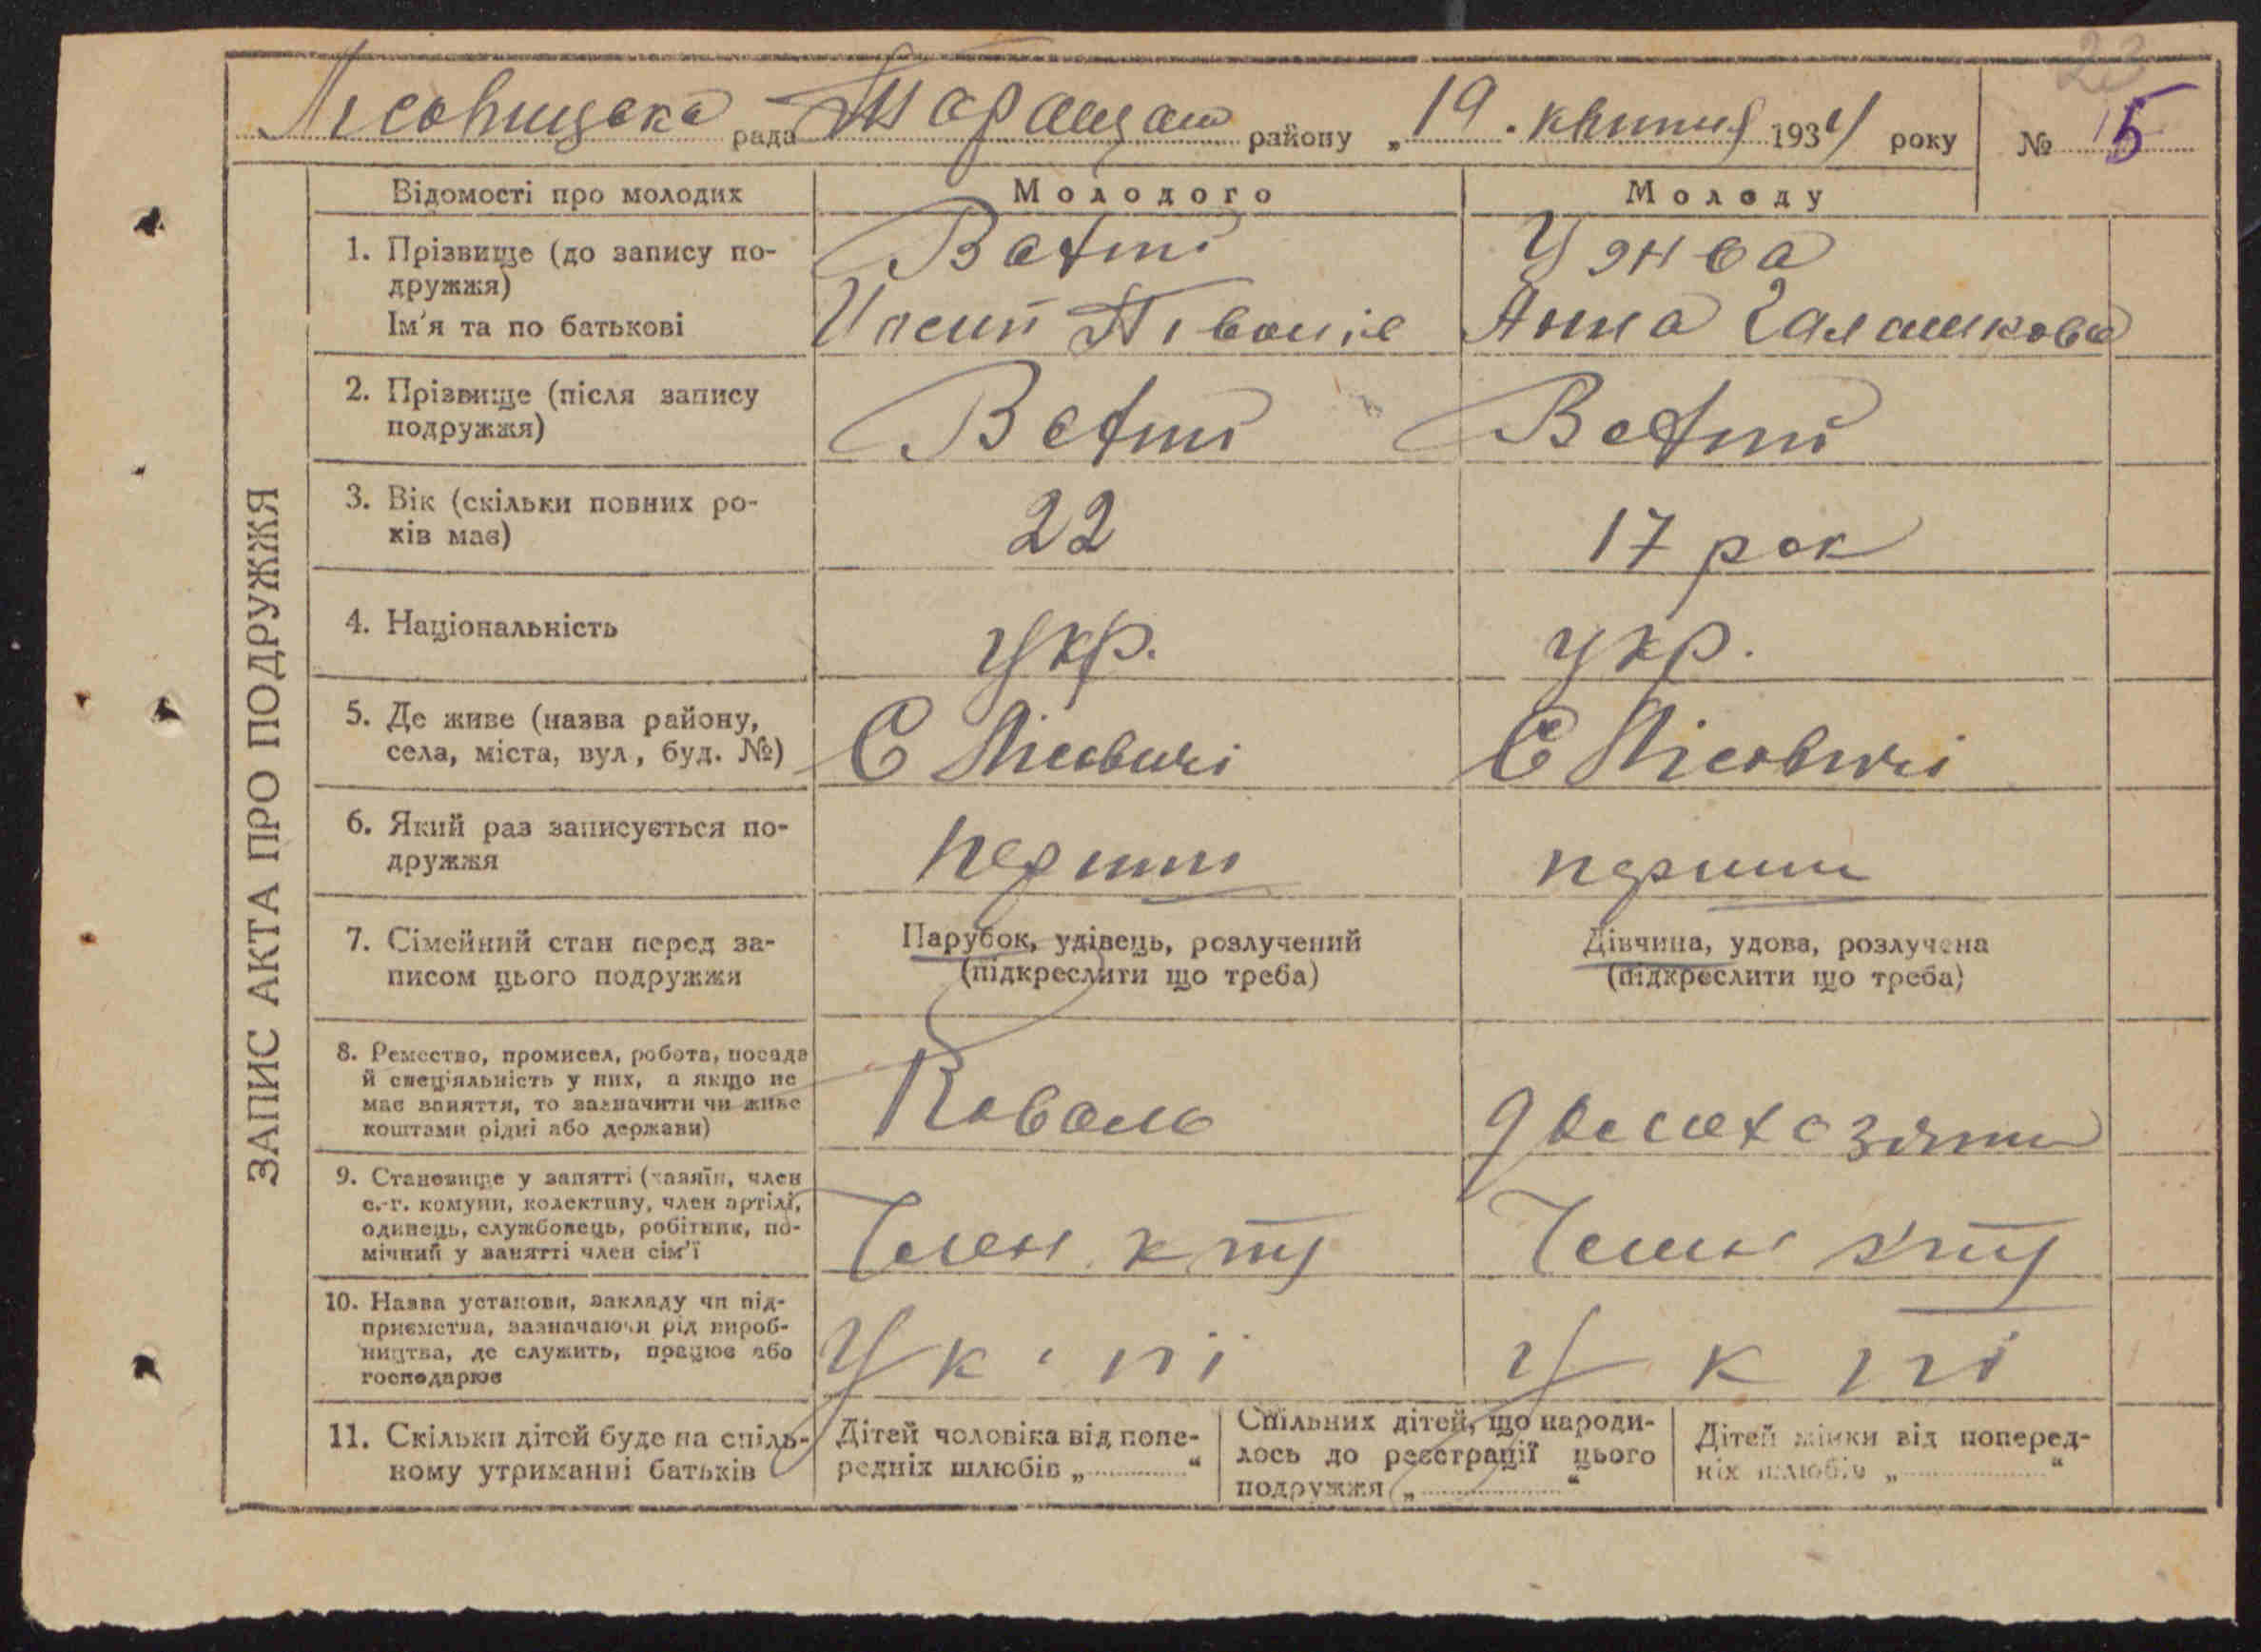 23
Лісовицька рада Таращан району „19. квітня 1934 року № 15
ЗАПИС АКТА ПРО ПОДРУЖЖЯ
Відомості про молодих Молодого Молоду
1. Прізвище (до запису по-
дружжя)
Ім'я та по батькові
Анна
2. Прізвище (після запису
подружжя)
3. Вік (скільки повних ро-
ків має)
22 17 рок
4. Національність
укр. укр.
5. Де живе (назва району,
села, міста, вул, буд. №)
С Лісовичі С Лісовичі
6. Який раз записується по-
дружжя
перший перший
7. Сімейний стан перед за-
писом цього подружжя
Парубок, удівець, розлучений
(підкреслити що треба)
Дівчина, удова, розлучена
(підкреслити що треба)
8. Ремество, промисел, робота, посада
й спеціяльність у них, а якщо не
має заняття, то зазначити чи живе
коштами рідні або держави)
Коваль
9. Становище у занятті (хазяїн, член
с.-г. комуни, колективу, член артілі,
одинець, службовець, робітник, по-
мічний у занятті член сім'ї
Член к-ту Член к-ту
10. Назва установи, закладу чи під-
приємства, зазначаючи рід вироб-
ництва, де служить, працює або
господарює
У к-ті У к-ті
11. Скільки дітей буде на спіль-
ному утриманні батьків
Дітей чоловіка від попе-
редніх шлюбів „ “
Спільних дітей, що народи-
лось до реєстрації цього
подружжя „ “
Дітей жінки від поперед-
ніх шлюбів „ “